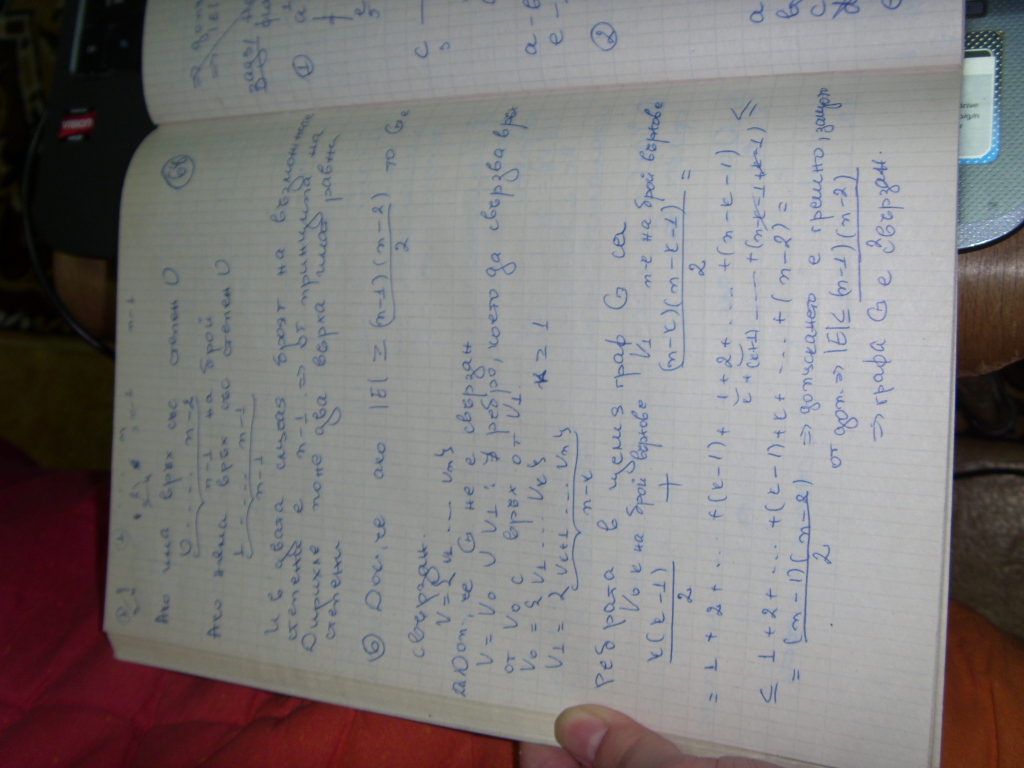 64
Ако има връх със степен 0
0 ..... n-2
n-1 на брой
Ако няма връх със степен 0
1 ..... n-1
n-1
И в двата случая броят на възможните
степени е n-1 => от принципа на
Дирихле поне два върха имат равна
степен
⑥ Док, че ако |E| ≥ (n-1)(n-2)/2 то G е
свързан.
Доп, че G не е свързан
V = {v1 ..... vn}
V = V0 ∪ V1 : ∄ ребро, което да свързва връх
от V0 с връх от V1
V0 = {v1 ... vk} k ≥ 1
V1 = {vk+1 ..... vn}
n-k
Ребрата в целия граф G са
V0 k на брой върхове V1 n-k на брой върхове
k(k-1)/2 + (n-k)(n-k-1)/2 =
= 1 + 2 + ... + (k-1) + 1 + 2 + ... + (n-k-1) ≤
k + (k+1) ..... + (n-k-1+k-1) ≤
≤ 1 + 2 + ... + (k-1) + k + ... + (n-2) =
= (n-1)(n-2)/2 => допускането е грешно, защото
от доп => |E| ≤ (n-1)(n-2)/2
=> графа G е свързан.
①
②